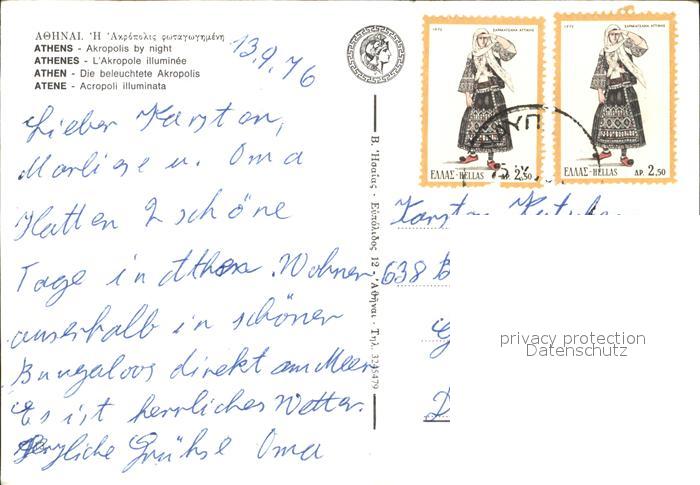 ΑΘΗΝΑΙ. Ἡ Ἀκρόπολις φωταγωγημένη
ATHENS - Akropolis by night
ATHENES - L'Akropole illuminée
ATHEN - Die beleuchtete Akropolis
ATENE - Acropoli illuminata
13.9.76
Lieber Karsten,
Marliese u. Oma
Hatten 2 schöne
Tage in Athen. Wohnen
ausserhalb in schönen
Bungaloos direkt am Meer
Es ist herrliches Wetter.
Herzliche Grühse Oma
Β. Ἠσαΐας - Εὐπόλιδος 12 - Ἀθῆναι - Τηλ. 3245479
1972 ΣΑΡΑΚΑΤΣΑΝΑ ΑΤΤΙΚΗΣ
ΕΛΛΑΣ-HELLAS ΔΡ. 2,50
1972 ΣΑΡΑΚΑΤΣΑΝΑ ΑΤΤΙΚΗΣ
ΕΛΛΑΣ-HELLAS ΔΡ. 2,50
Karsten
638 B
G
D
privacy protection
Datenschutz